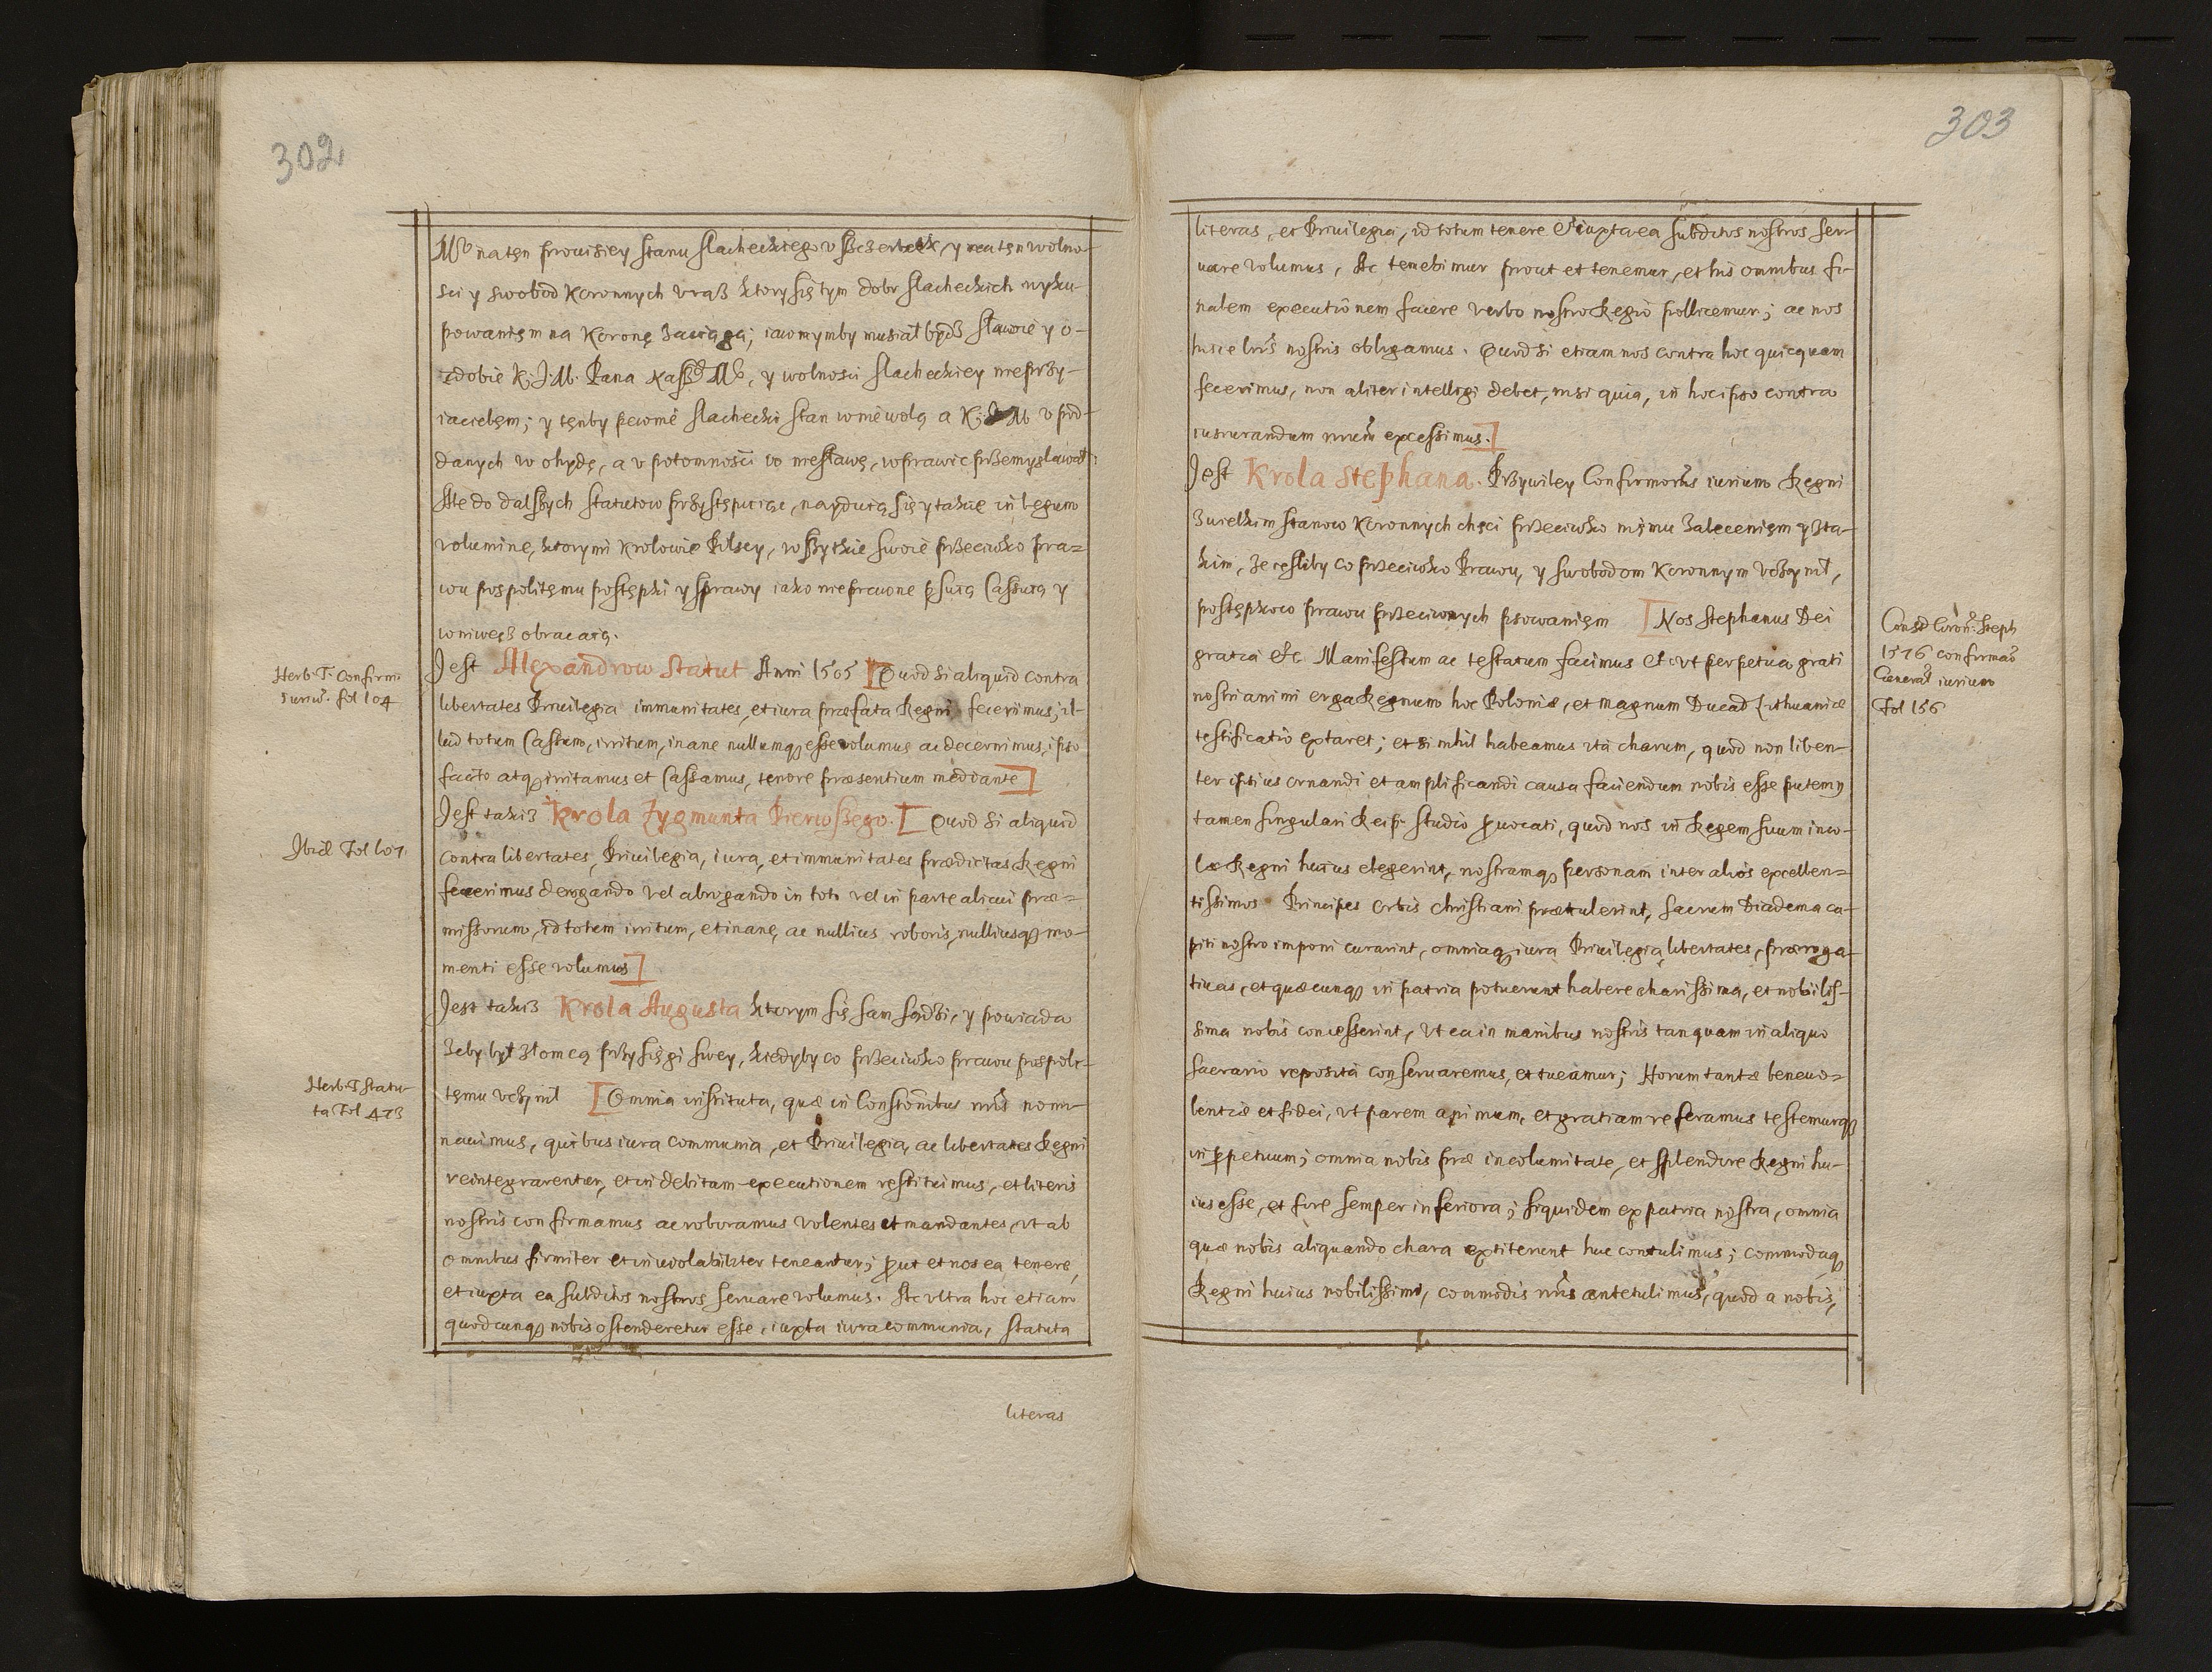 302
Mo na tęn prouisiey stanu slacheckiego vszczerbek, y na tęn wolno-
sci y swobod Koronnych vraz ktory się tym dobr slacheckich wyku-
powanięm na Koronę zaciąga; iawnymby musiał bydź sławie y o-
zdobie K. J. M. Pana Naszego Mo, y wolnosci slacheckiey nieprzy-
iacielęm; y tęnby pewnie slachecki stan w niewolą a K. J. M v pod-
danych w ohydę, a v potomnosci w niesławę, wprawic przemyslawał:
Ale do dalszych statutow przystępuiąc, nayduią się y takie in legum
volumine, ktorymi Krolowie Polscy, wszytkie swoie przeciwko pra=
wu pospolitęmu postępki y sprawy iako nieprawne psuią Cassuią y
wniwecz obracaią.
Jest Alexandrow Statut Anni 1505 [Quod si aliquid contra
libertates Priuilegia immunitates, et iura præfata Regni fecerimus, il-
lud totum Cassum, irritum, inane nullumq3 esse volumus ac decernimus, ipso
facto atq3 irritamus et Cassamus, tenore præsentium mediante]
Jest takiz Krola Zygmunta Pierwszego. [Quod si aliquid
contra libertates, Priuilegia, iura, et immunitates prædictas Regni
fecerimus derogando vel abrogando in toto vel in parte alicui præ=
missorum, id totum irritum, et inane, ac nullius roboris, nulliusq3 mo-
menti esse volumus]
Jest takiz Krola Augusta ktorym się sam sądzi, y powiada
zeby był złomcą przysięgi swey, kiedyby co przeciwko prawu pospoli-
tęmu vczynił [Omnia instituta, quæ in Constonibus nris nomi-
nauimus, quibus iura communia, et Priuilegia, ac libertates Regni
reintegrarentur, et in debitam executionem restituimus, et literis
nostris confirmamus ac roboramus volentes et mandantes, vt ab
omnibus firmiter et inviolabiliter teneantur; prout et nos ea tenere,
et iuxta ea subditos nostros seruare volumus. Ac vltra hoc etiam
quodcunq3 nobis ostenderetur esse, iuxta iura communia, statuta
literas
Herb. T. Confirm.
Iuriu. fol 104
Ibid Fol 107.
Herb. T Statu-
ta Fol 473
303
literas, et Priuilegia, id totum tenere et iuxta ea subditos nostros ser-
uare volumus, Ac tenebimur prout et tenemur, et his omnibus fi-
nalem executionem facere verbo nostro Regio pollicemur; ac nos
hisce lris nostris obligamus. Quod si etiam nos contra hoc quicquam
fecerimus, non aliter intelligi debet, nisi quia, in hoc ipso contra
iusiurandum nrum excessimus.]
Jest Krola Stephana. Przywiley Confirmonis iurium Regni
z wielkim stanow Koronnych chęci przeciwko niemu zalecenięm y z ta-
kim, ze iesliby co przeciwko Prawu, y swobodom Koronnym vczynił,
postępkow prawu przeciwnych psowanięm [Nos Stephanus Dei
gratia etc. Manifestum ac testatum facimus etc vt perpetua grati
nostri animi erga Regnum hoc Poloniæ, et magnum Ducad Lithuaniæ
testificatio extaret; et si nihil habeamus ita charum, quod non liben-
ter ipsius ornandi et amplificandi causa faciendum nobis esse putemy
tamen singulari Reip. studio prouocati, quod nos in Regem suum inco-
læ Regni huius elegerint, nostramq3 personam inter alios excellen=
tissimos Principes Orbis christiani prætulerint, sacrum Diadema ca-
piti nostro imponi curarint, omniaq3 iura Priuilegia, libertates, præroga-
tiuas, et quæcunq3 in patria potuerunt habere charissima, et nobilis-
sima nobis concesserint, vt ea in manibus nostris tanquam in aliquo
sacrario reposita conseruaremus, et tueamur; Horum tantæ beneuo=
lentiæ et fidei, vt parem animum, et gratiam referamus testemurq3
in perpetuum; omnia nobis præ incolumitate, et splendore Regni hu-
ius esse, et fore semper inferiora; siquidem ex patria nostra, omnia
quæ nobis aliquando chara extiterunt huc contulimus; commodaq3
Regni huius nobilissimi, commodis nris antetulimus, quod a nobis,
Const Coron. Steph
1576 confirmao
General iurium
Fol 156